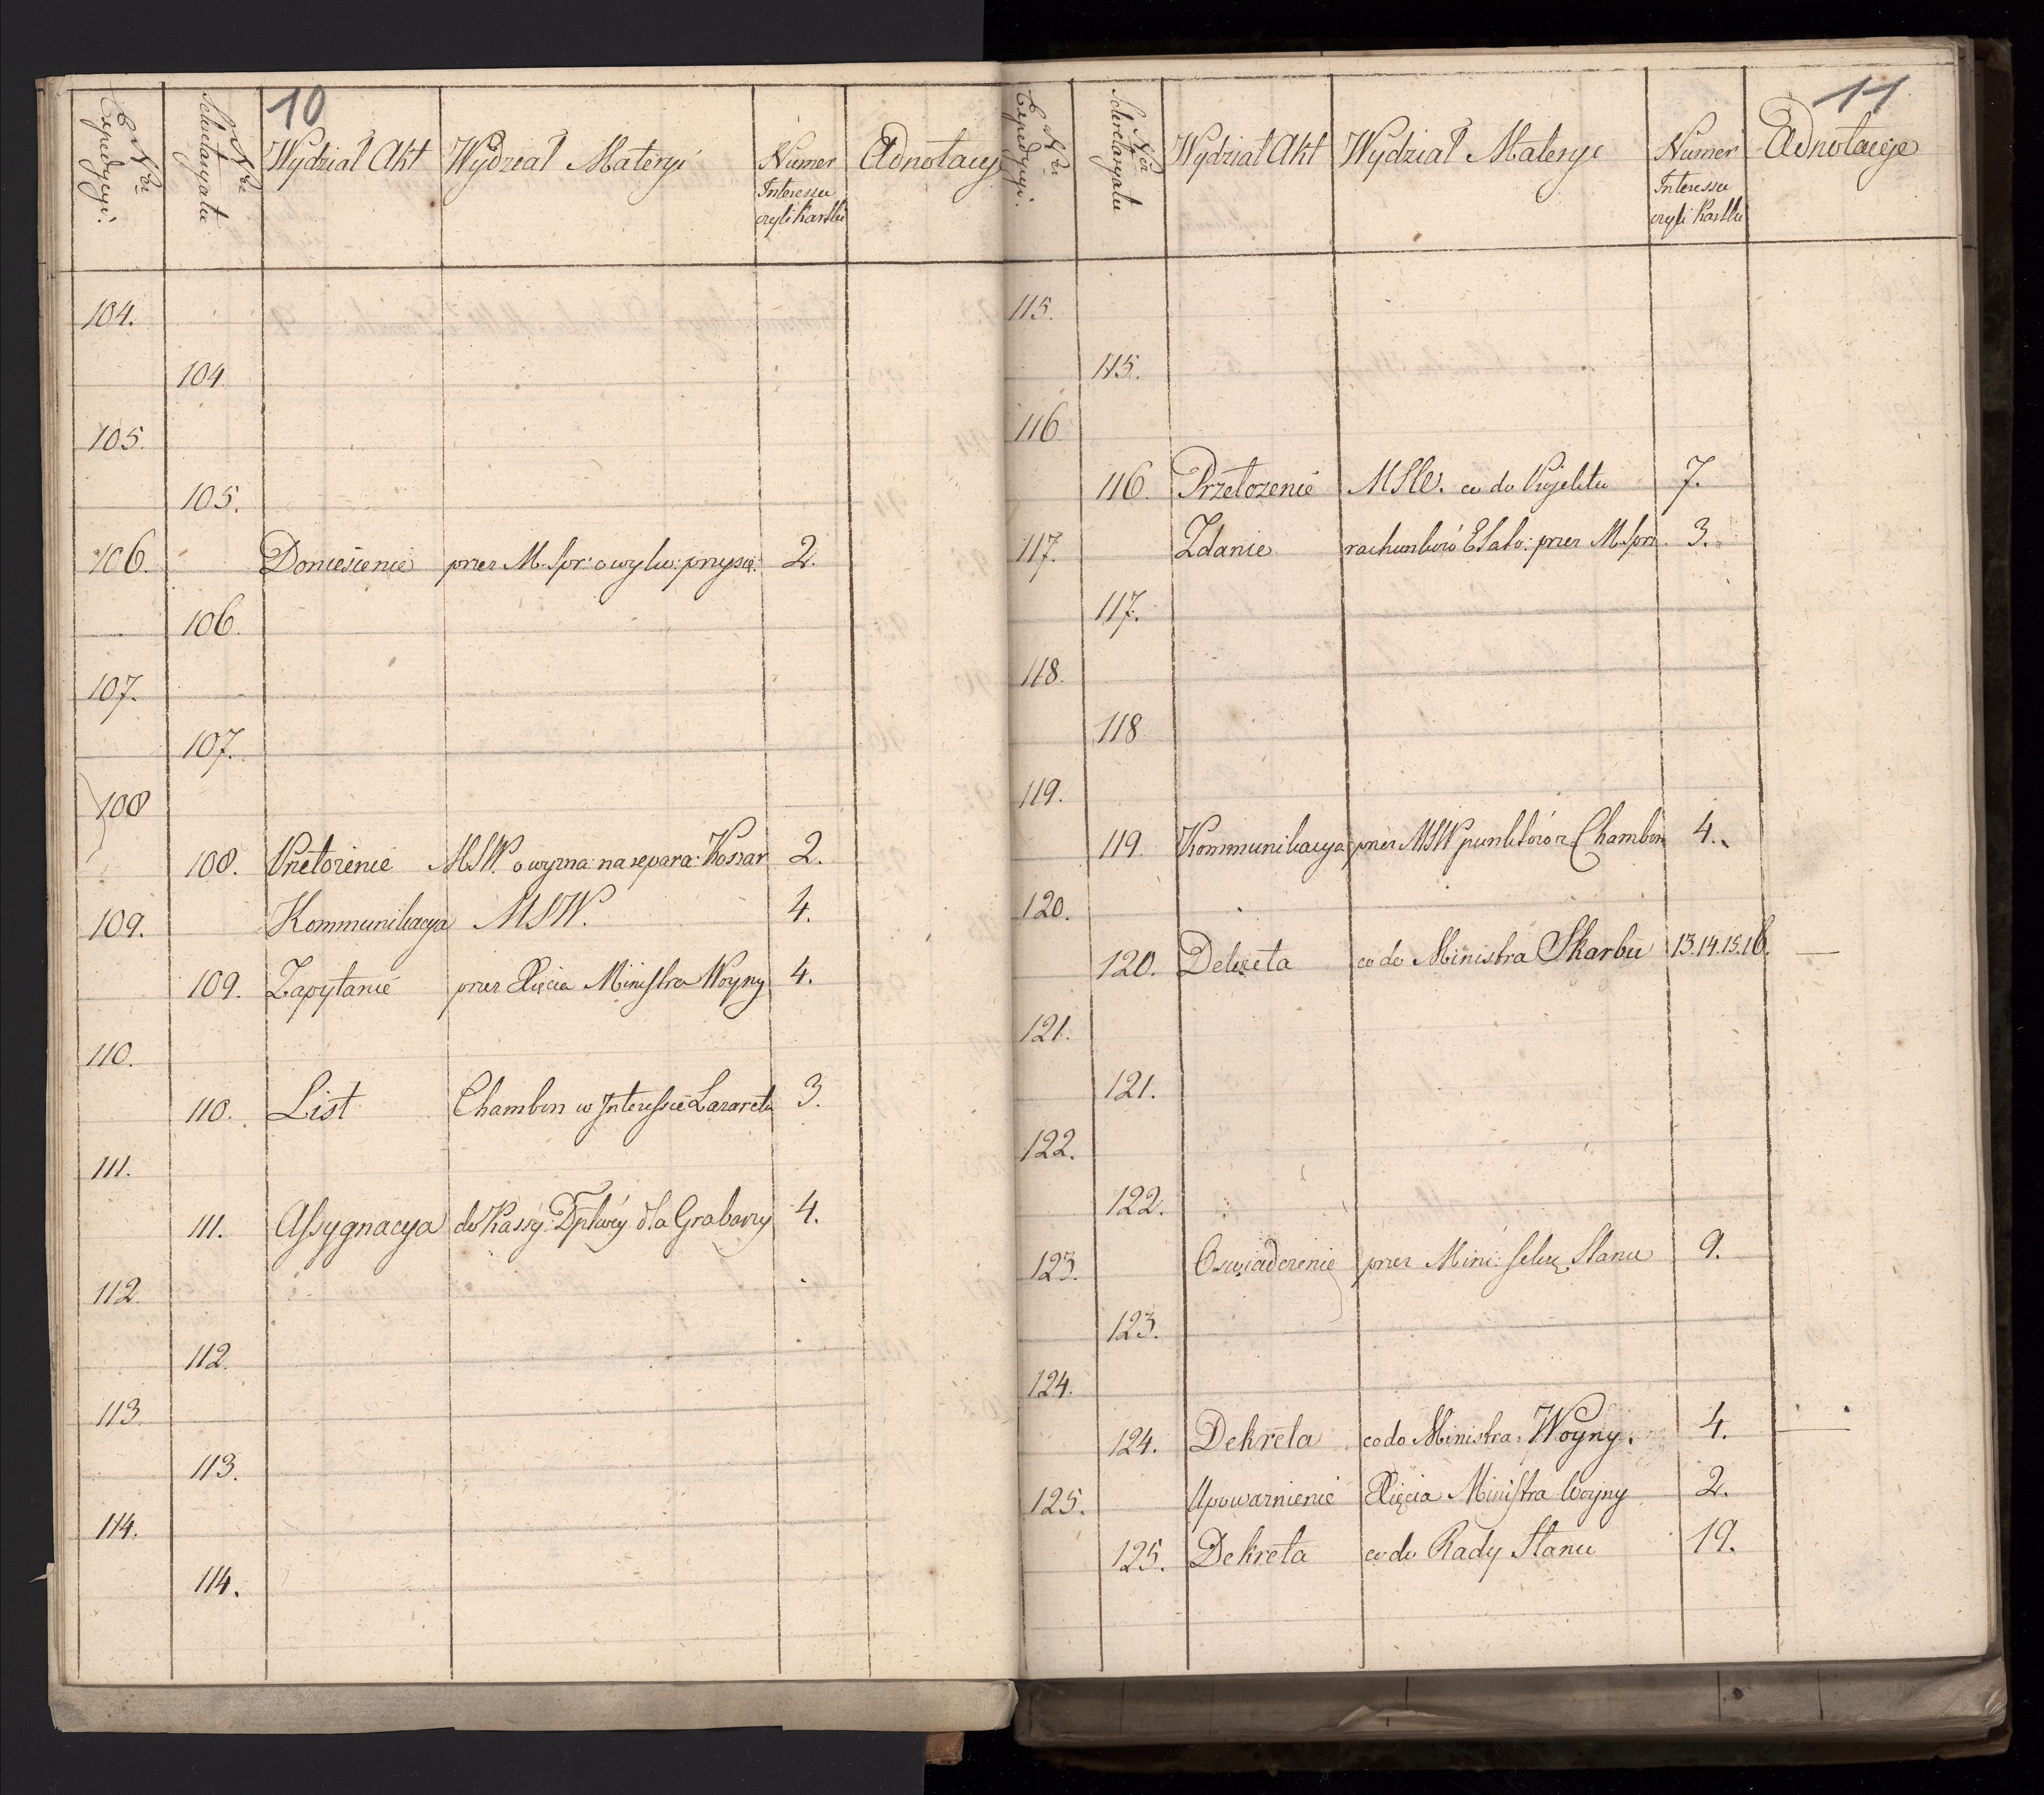 10
Nra Expedycyi.
Nra Sekretaryatu
Wydział Akt
Wydział Materyi
Numer Interessu czyli Kartki
Adnotacye
104.
104
105.
105.
106. Doniesienie przez M. Spr: o wyko: przysię: 2.
106.
107.
107.
108
108. Przełożenie MSW. o wyzna: na separa: Koszar 2.
109. Kommunikacya MSW. 4.
109. Zapytanie przez Xięcia Ministra Woyny 4.
110.
110. List Chambon w Interessie Lazaretu 3.
111.
111. Assygnacya do Kassy Dptowéy dla Grabarzy 4.
112.
112.
113.
113.
114.
114.
11
Nra Expedycyi.
Nra Sekretaryatu
Wydział Akt
Wydział Materyi
Numer Interessu czyli Kartki
Adnotacye
115.
115.
116.
116. Przełozenie MSW. co do Projektu 7.
117. Zdanie rachunków przez M. Spra. 3.
117.
118.
118
119.
119. Kommunikacya przez MSW punktów z Chambon 4.
120.
120. Dekreta co do Ministra Skarbu 13.14.15.16. —
121.
121.
122.
122.
123. Oswiadczenie przez Mini: Sekr. Stanu 9.
123.
124.
124. Dekreta co do Ministra Woyny. 4. —
125. Upoważnienie Xięcia Ministra Woyny 2.
125. Dekreta co do Rady Stanu 19.